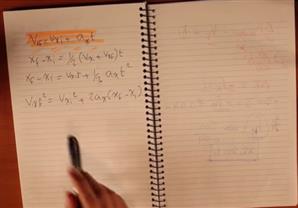 Vxf = Vxi + axt
xf - xi = 1/2 (Vxi + Vxf) t
xf - xi = Vxi t + 1/2 axt²
Vxf² = Vxi² + 2ax(xf - xi)